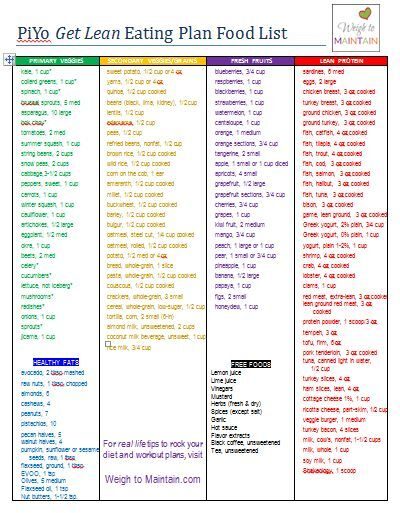 PiYo Get Lean Eating Plan Food List
Weigh to
MAINTAIN
PRIMARY VEGGIES
kale, 1 cup*
collard greens, 1 cup*
spinach, 1 cup*
brussel sprouts, 5 med
asparagus, 10 large
bok choy*
tomatoes, 2 med
summer squash, 1 cup
string beans, 2 cups
snow peas, 2 cups
cabbage, 3-1/2 cups
peppers, sweet, 1 cup
carrots, 1 cup
winter squash, 1 cup
cauliflower, 1 cup
artichokes, 1/2 large
eggplant, 1/2 med
okra, 1 cup
beets, 2 med
celery*
cucumbers*
lettuce, not iceberg*
mushrooms*
radishes*
onions, 1 cup
sprouts*
jicama, 1 cup
HEALTHY FATS
avocado, 2 tbsp mashed
raw nuts, 1 tbsp, chopped
almonds, 6
cashews, 4
peanuts, 7
pistachios, 10
pecan halves, 5
walnut halves, 4
pumpkin, sunflower or sesame
seeds, raw, 1 tbsp
flaxseed, ground, 1 tbsp
EVOO, 1 tsp
Olives, 5 medium
Flaxseed oil, 1 tsp
Nut butters, 1-1/2 tsp.
SECONDARY VEGGIES/GRAINS
sweet potato, 1/2 cup or 4 oz
yams, 1/2 cup or 4 oz
quinoa, 1/2 cup cooked
beans (black, lima, kidney), 1/2 cup
lentils, 1/2 cup
edamame, 1/2 cup
peas, 1/2 cup
refried beans, nonfat, 1/2 cup
brown rice, 1/2 cup cooked
wild rice, 1/2 cup cooked
corn on the cob, 1 ear
amaranth, 1/2 cup cooked
millet, 1/2 cup cooked
buckwheat, 1/2 cup cooked
barley, 1/2 cup cooked
bulgur, 1/2 cup cooked
oatmeal, steel cut, 1/4 cup cooked
oatmeal, rolled, 1/2 cup cooked
potato, 1/2 med or 4 oz
bread, whole-grain, 1 slice
pasta, whole-grain, 1/2 cup cooked
couscous, 1/2 cup cooked
crackers, whole-grain, 3 small
cereal, whole-grain, low-sugar, 1/2 cup
tortilla, corn, 2 small (6-in)
almond milk, unsweetened, 2 cups
coconut milk beverage, unsweet., 1 cup
rice milk, 3/4 cup
For real life tips to rock your
diet and workout plans, visit
Weigh to Maintain.com
FRESH FRUITS
blueberries, 3/4 cup
raspberries, 1 cup
blackberries, 1 cup
strawberries, 1 cup
watermelon, 1 cup
cantaloupe, 1 cup
orange, 1 medium
orange sections, 3/4 cup
tangerine, 2 small
apple, 1 small or 1 cup diced
apricots, 4 small
grapefruit, 1/2 large
grapefruit sections, 3/4 cup
cherries, 3/4 cup
grapes, 1 cup
kiwi fruit, 2 medium
mango, 3/4 cup
peach, 1 large or 1 cup
pear, 1 small or 3/4 cup
pineapple, 1 cup
banana, 1/2 large
papaya, 1 cup
figs, 2 small
honeydew, 1 cup
FREE FOODS
Lemon juice
Lime juice
Vinegars
Mustard
Herbs (fresh & dry)
Spices (except salt)
Garlic
Hot sauce
Flavor extracts
Black coffee, unsweetened
Tea, unsweetened
LEAN PROTEIN
sardines, 6 med
eggs, 2 large
chicken breast, 3 oz cooked
turkey breast, 3 oz cooked
ground chicken, 3 oz cooked
ground turkey, 3 oz cooked
fish, catfish, 4 oz cooked
fish, tilapia, 4 oz cooked
fish, trout, 4 oz cooked
fish, cod, 3 oz cooked
fish, salmon, 3 oz cooked
fish, halibut, 3 oz cooked
fish, tuna, 3 oz cooked
bison, 3 oz cooked
game, lean ground, 3 oz cooked
Greek yogurt, 2% plain, 3/4 cup
Greek yogurt, 0% plain, 1 cup
yogurt, plain 1-2%, 1 cup
shrimp, 4 oz cooked
crab, 4 oz cooked
lobster, 4 oz cooked
clams, 1 cup
red meat, extra-lean, 3 oz cooked
lean ground red meat, 3 oz
cooked
protein powder, 1 scoop/3 oz
tempeh, 3 oz
tofu, firm, 6 oz
pork tenderloin, 3 oz cooked
tuna, canned light in water,
1/2 cup
turkey slices, 4 oz
ham slices, lean, 4 oz
cottage cheese 1%, 1 cup
ricotta cheese, part-skim, 1/2 cup
veggie burger, 1 medium
turkey bacon, 4 slices
milk, cow's, nonfat, 1-1/2 cups
milk, whole, 1 cup
soy milk, 1 cup
Shakeology, 1 scoop